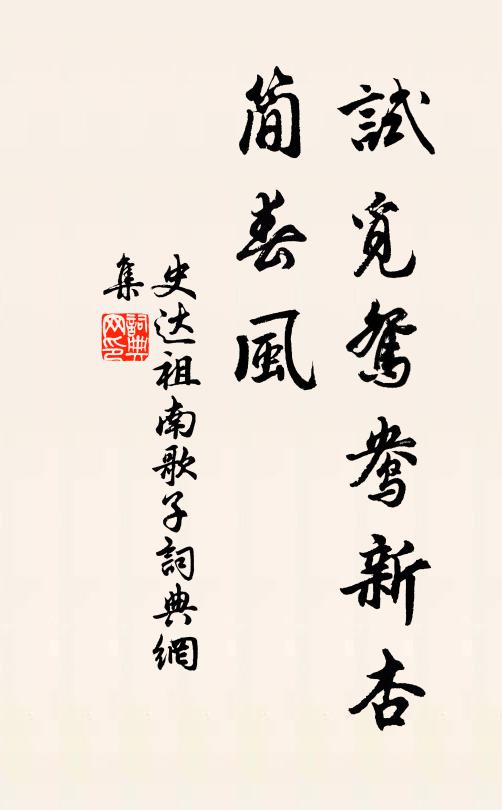 試覓鴛鴦新杏
簡春風
史达祖南歌子詞典網
集
詞典
网印